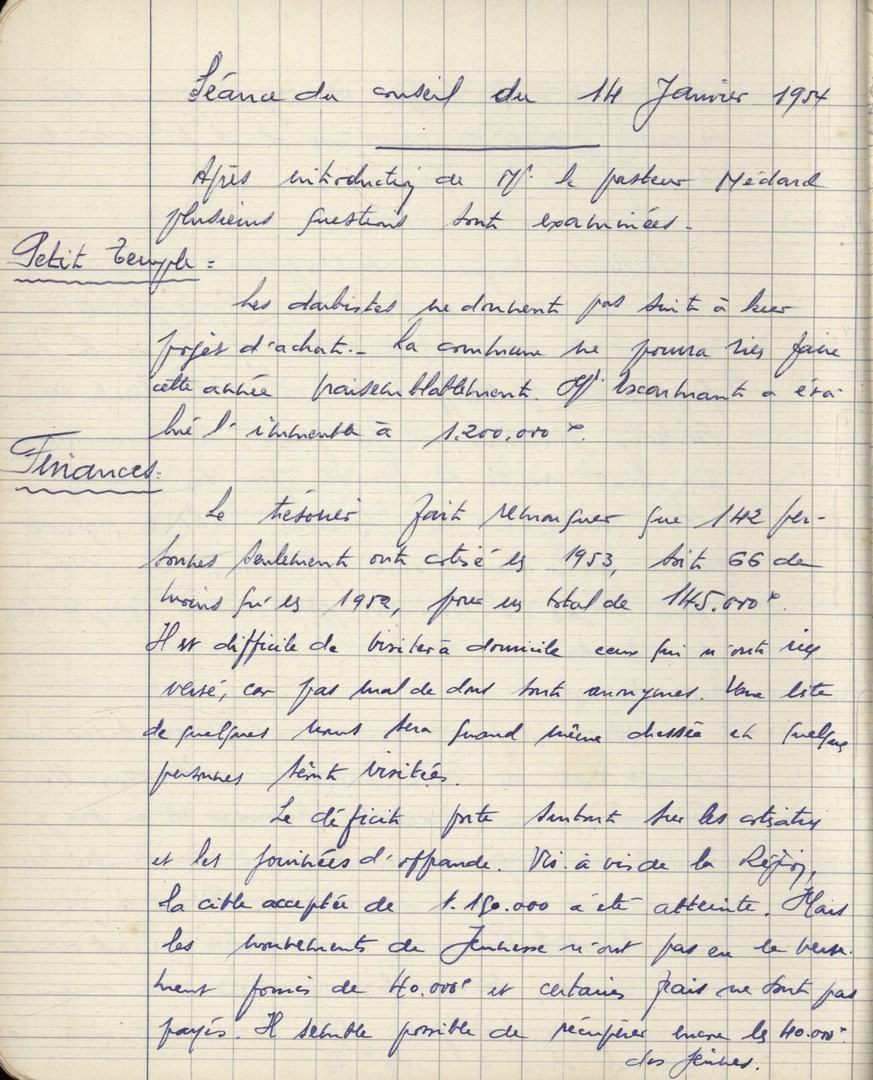 Séance du conseil du 14 Janvier 1954
Après introduction de Mr. le pasteur Médard
plusieurs questions sont examinées.
Petit Temple =
Les darbistes ne donnent pas suite à leur
projet d'achat. - La commune ne pourra rien faire
cette année vraisemblablement. Mr. Escarmant a éva-
lué l'immeuble à 1.200.000 F.
Finances =
Le trésorier fait remarquer que 142 per-
sonnes seulement ont cotisé en 1953, soit 66 de
moins qu'en 1952, pour un total de 145.000 F.
Il est difficile de visiter à domicile ceux qui n'ont rien
versé, car pas mal de dons sont anonymes. Une liste
de quelques noms sera quand même dressée et quelques
personnes seront visitées.
Le déficit porte surtout sur les cotisations
et les journées d'offrande. Vis à vis de la Région,
la cible acceptée de 1.150.000 a été atteinte. Mais
les mouvements de Jeunesse n'ont pas eu le verse-
ment promis de 40.000 F et certains frais ne sont pas
payés. Il semble possible de récupérer encore les 40.000 F
des Jeunes.